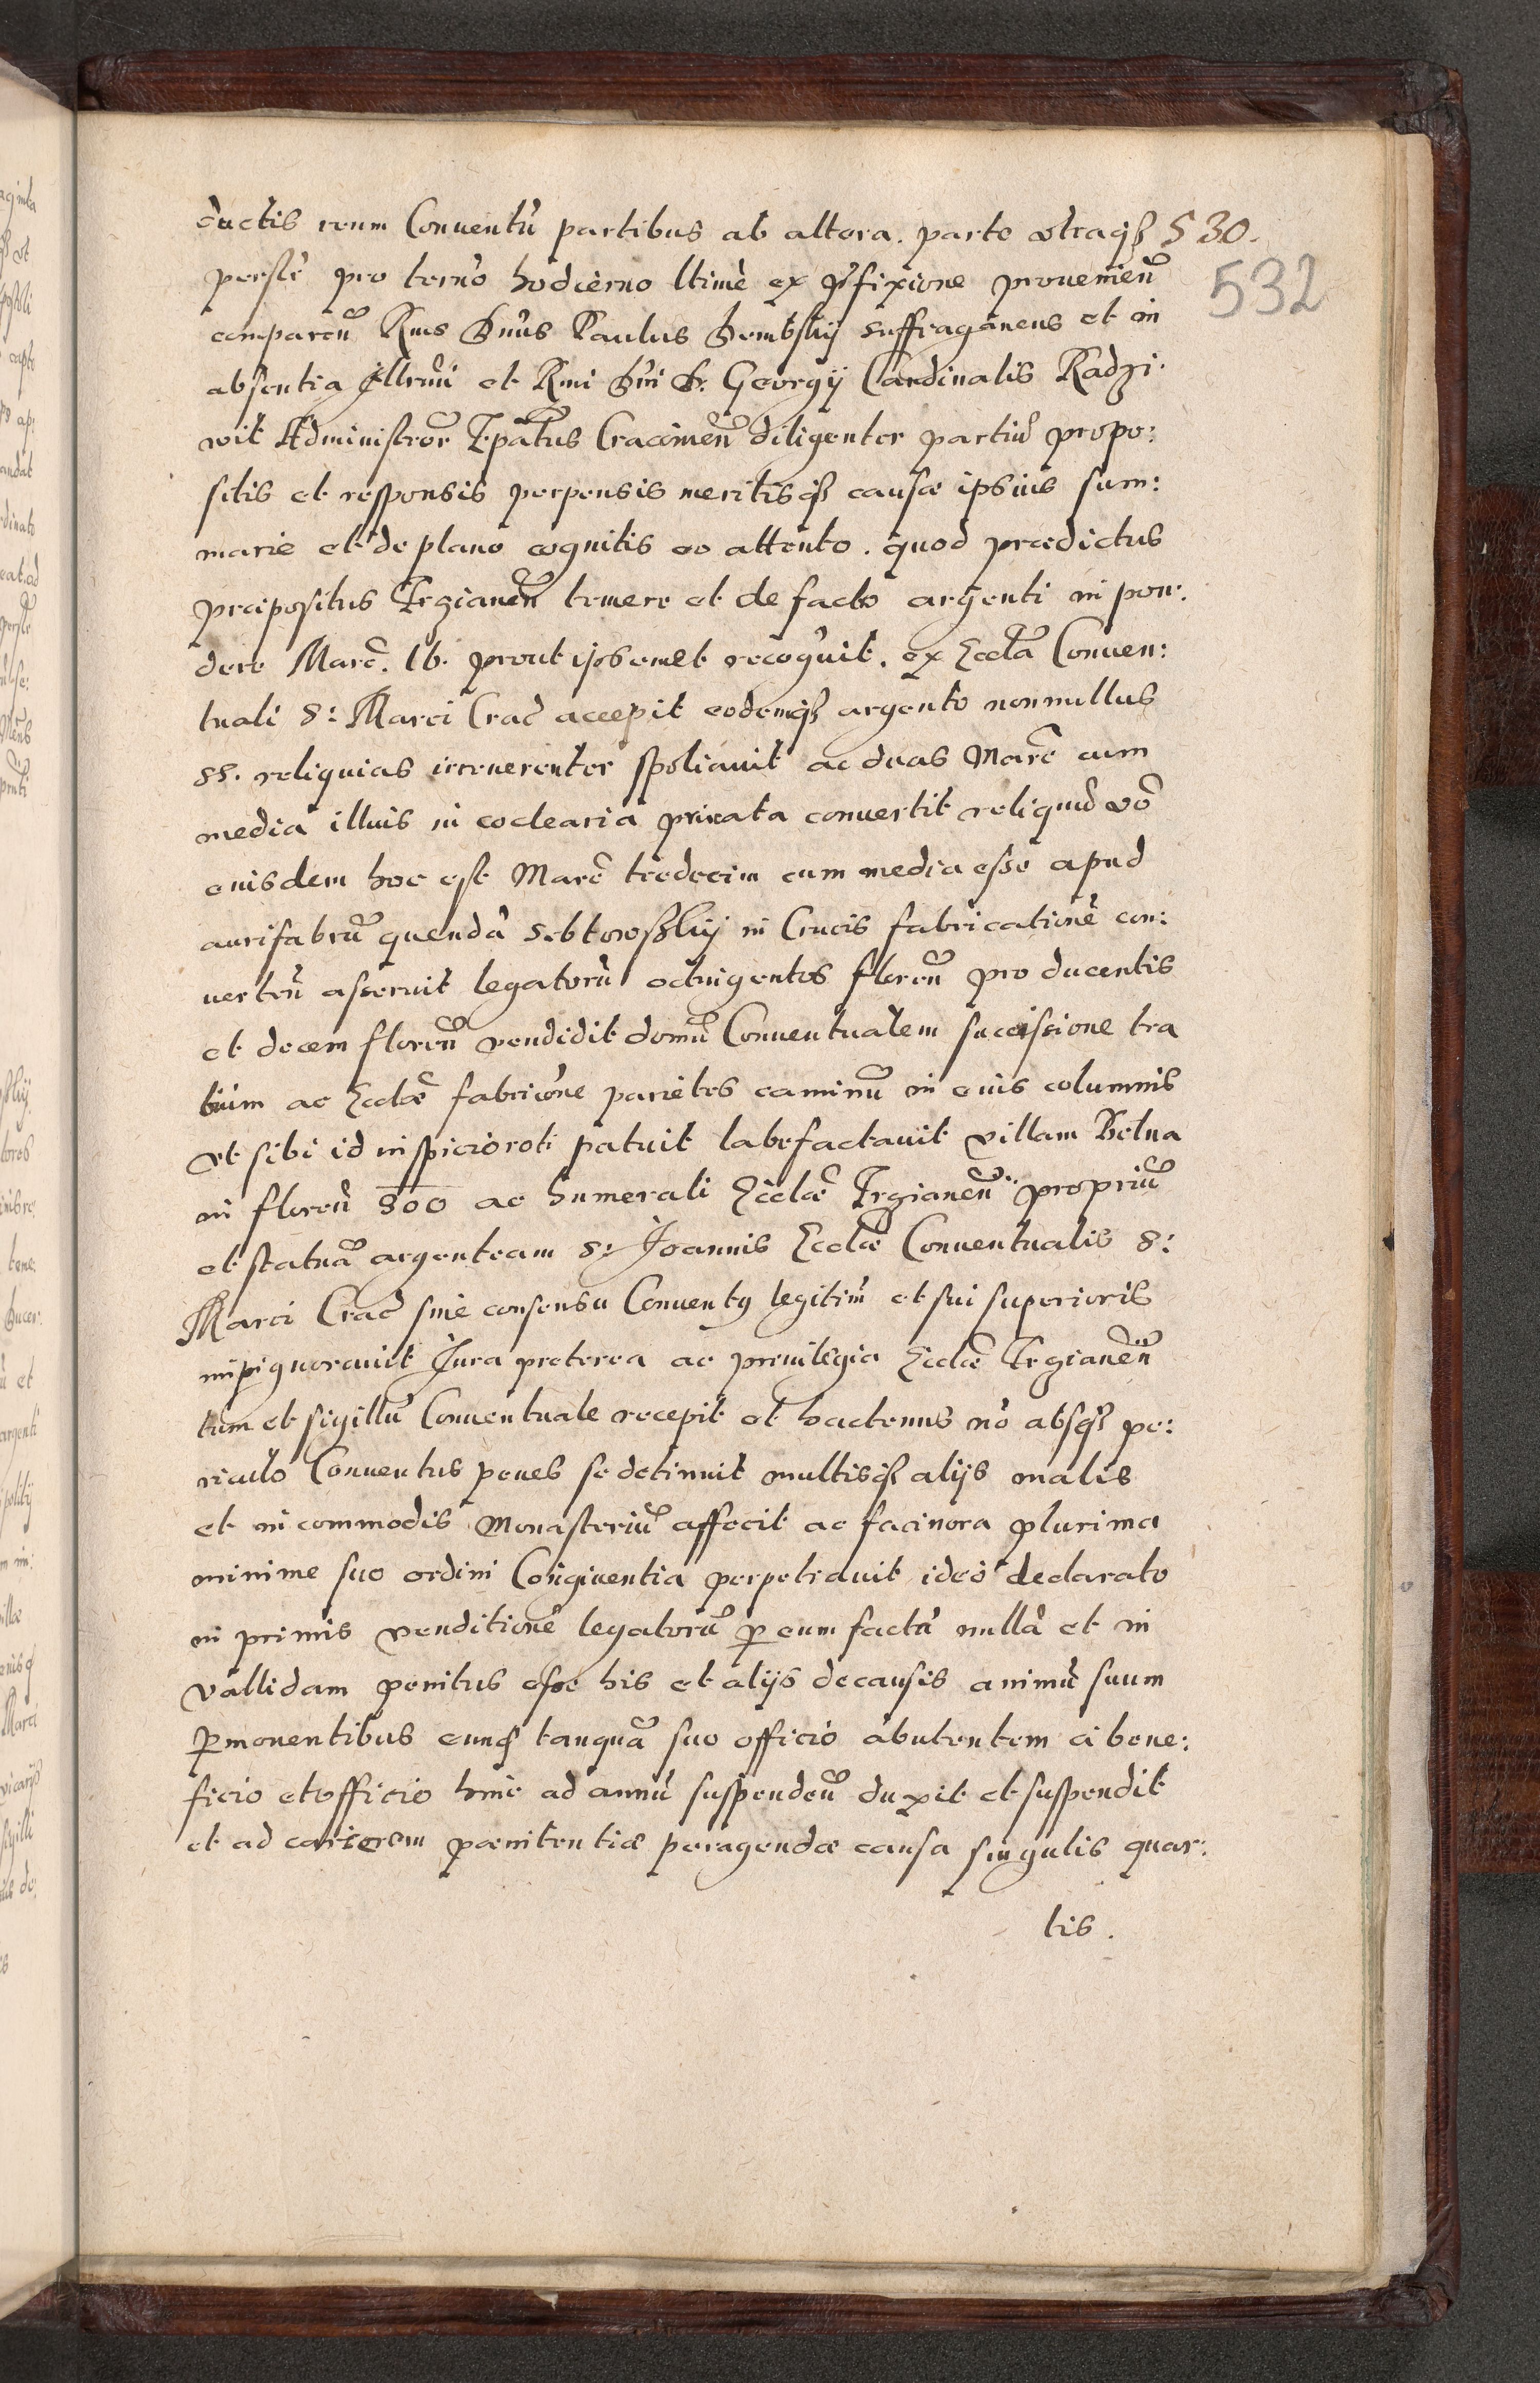 ductis reum Conventũ partibus ab altera. parte vtraqȝ 530.
532
persľr pro termo hodierno ltime ex p̃fixione provenieñ
compareñ Rms Dnus Paulus Dembskij suffraganeus et in
absentia Illrmi et Rmi Dni D. Georgij Cardinalis Radzi:
wil Administror Epatus Cracovieñ diligenter partiũ propo:
sitis et responsis perpensis meritisqȝ causæ ipsius sum:
marie et de plano cognitis eo attento. quod prædictus
præpositus Trzcianeñ temere et de facto argenti in pon:
dere Marc. 16. prout ipsemet recognvit. ex Eccľa Conven:
tuali S: Marci Crac̃ accepit eodemqȝ argento nonnullas
SS. reliquias irreverenter spoliavit ac duas Marc̃ cum
media illius in coclearia privata convertit reliquũ võ
eiusdem hoc est Marc̃ tredecim cum media esse apud
aurifabrũ quendã in Crucis fabricationẽ con:
verteñ asseruit legatorũ octingentos floreñ pro ducentis
et decem floreñ vendidit domũ Conventualem succisione tra
bium ac Eccľæ fabricõne parietes caminũ in eius columnis
vt sibi id inspicieti patuit labefactavit villam Betna
in floreñ 800 ac humerali Eccľæ Trzcianeñ propriũ
et statuã argenteam S: Joannis Eccľæ Conventualis S:
Marci Crac̃ sine consensu Conventꝰ legitiṁ et sui superioris
impignoravit Jura preterea ac previlegia Eccľæ Trzcianeñ
tum et sigillũ Conventuale recepit et hactenus nõ absqȝ pe:
riculo Conventus penes se detinuit multisqȝ alijs malis
et incommodis Monasteriũ affecit ac facinora plurima
minime suo ordini Congruentia perpetravit ideo declarato
in primis venditionẽ legatorũ ꝑ eum factã nullã et in
vallidam penitus esse his et alijs de causis animũ suum
ꝑmoventibus eumqȝ tanquã suo officio abutentem a bene:
ficio et officio hinc ad annũ suspendeñ duxit et suspendit
et ad carcerem pœnitentiæ peragendæ causa singulis quar:
tis.